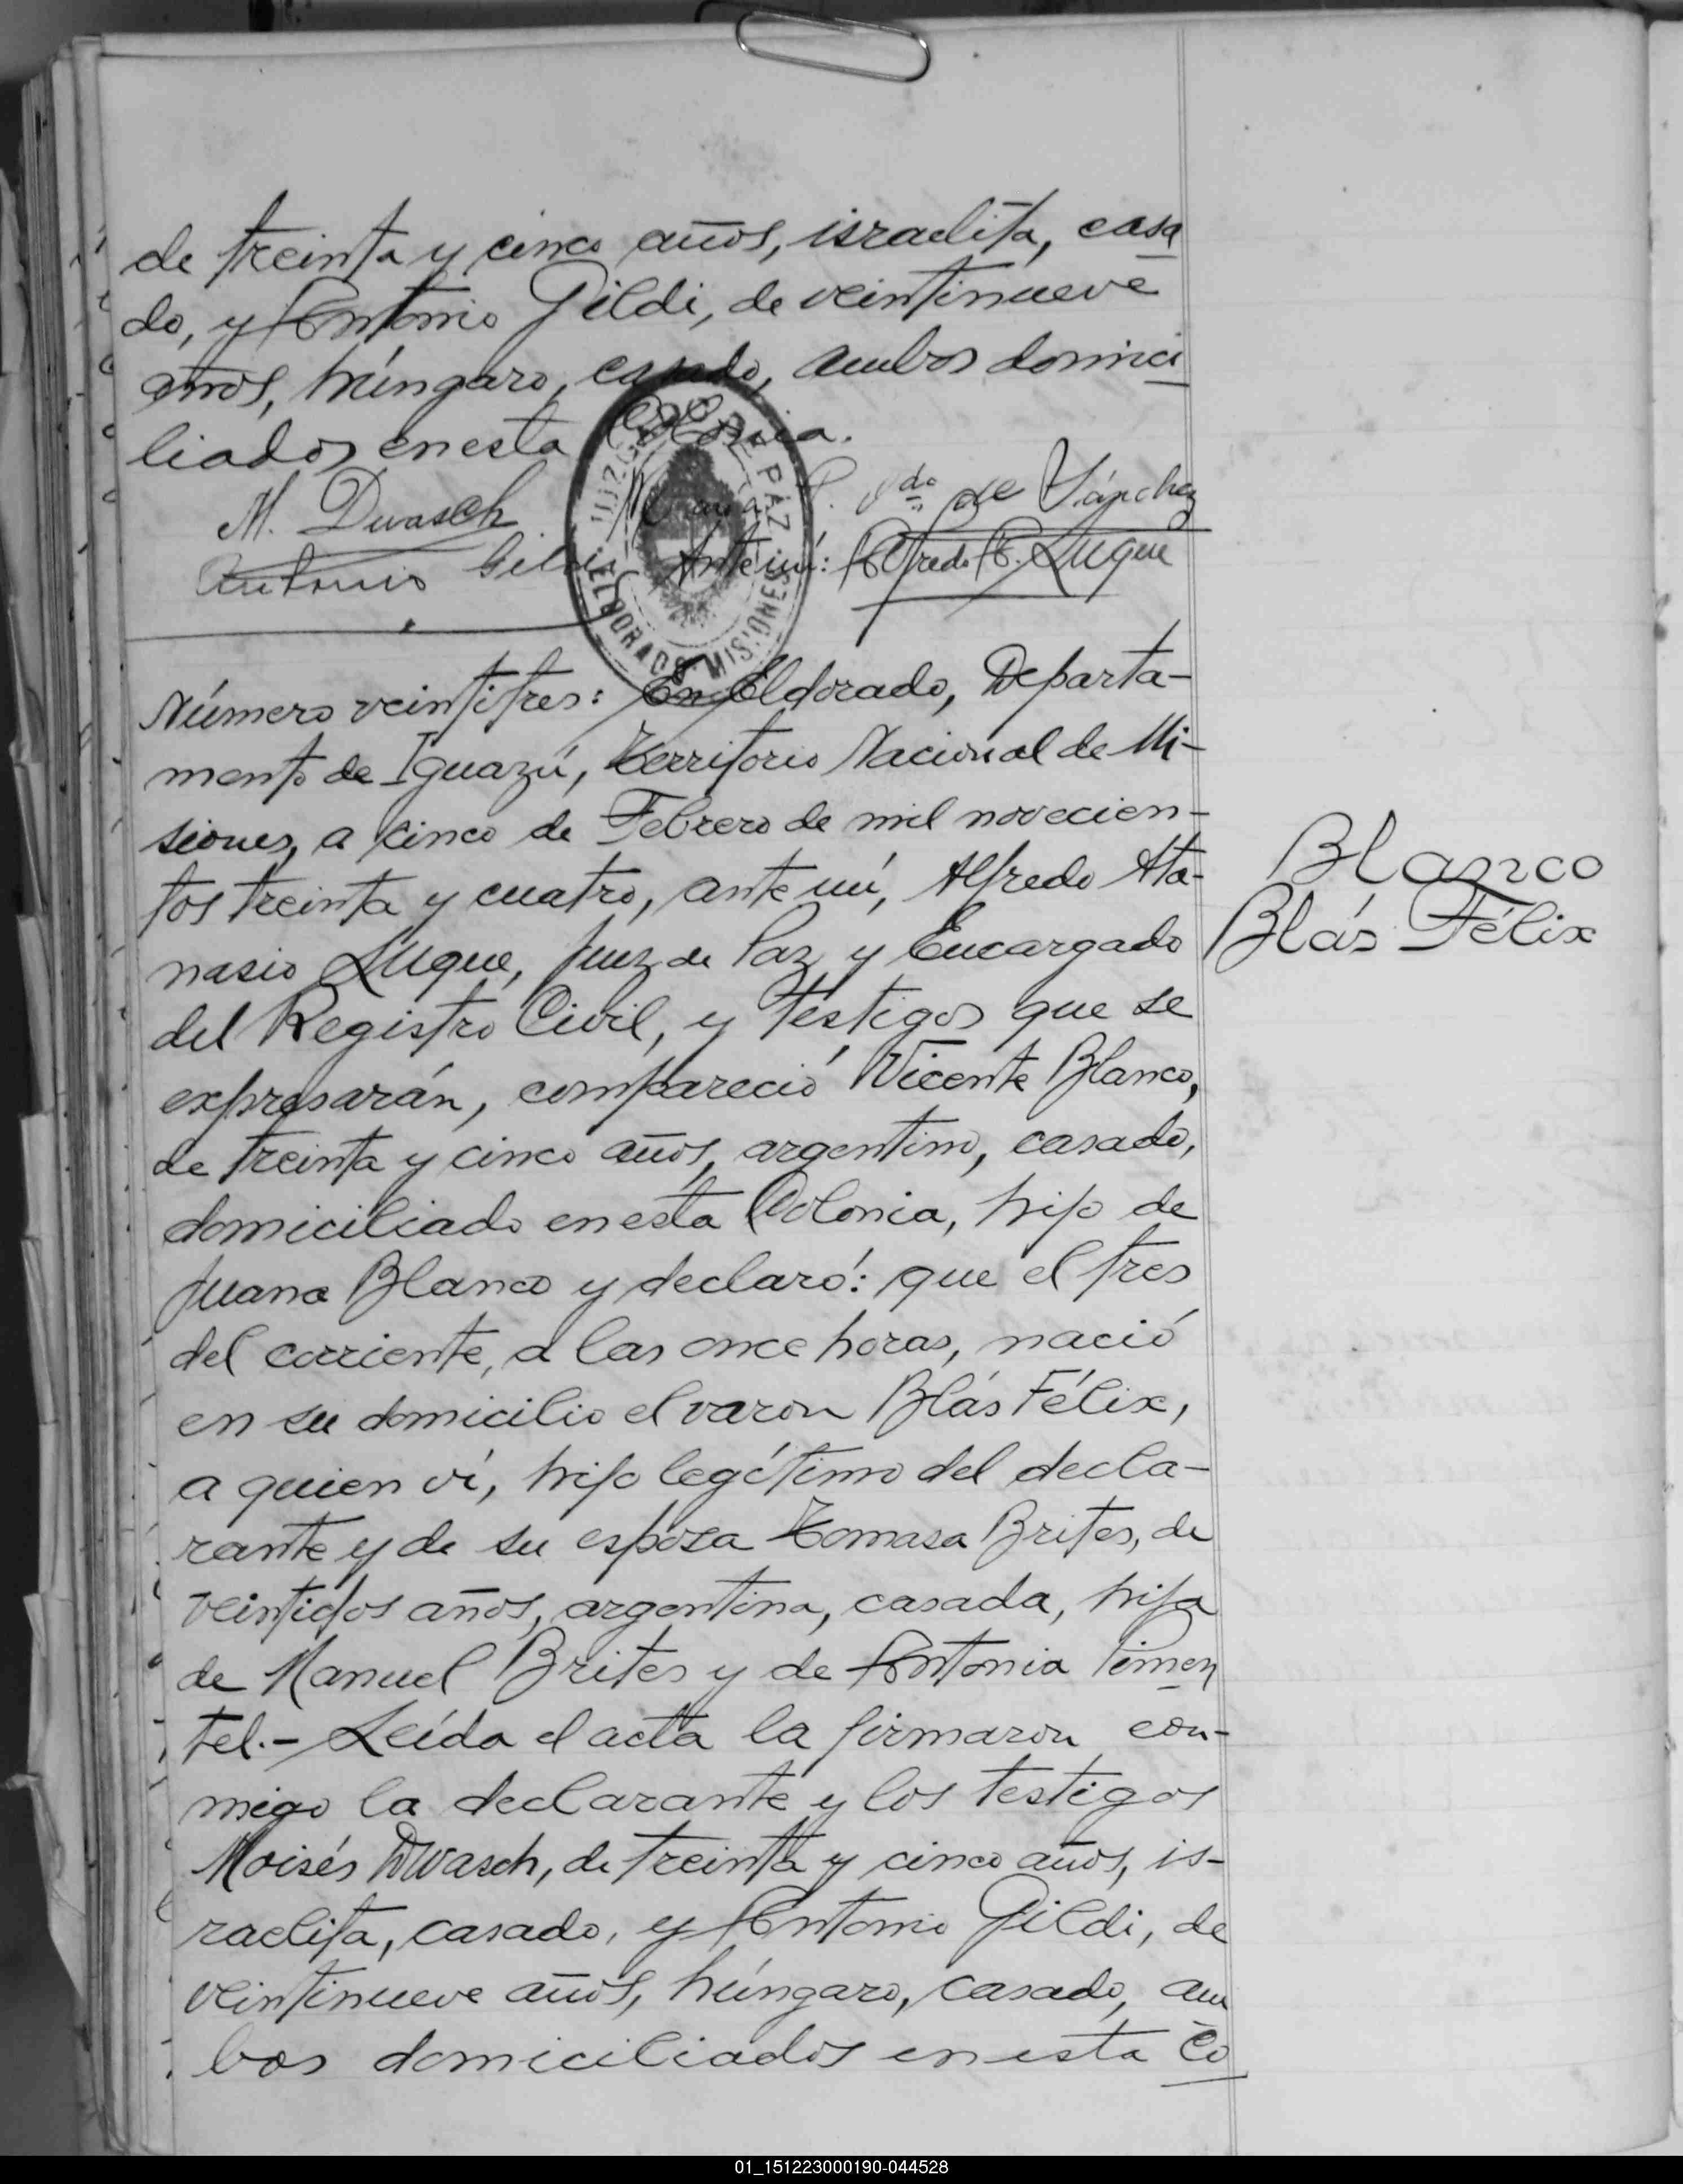 de treinta y cinco años, israelita, casa
do, y Antonio Gildi, de veintinueve
años, húngaro, casado, ambos domici
liados en esta Colonia.
M. Dwasch
Vda de Sánchez
Antonio Gildi
Ante mí: Alfredo A. Luque
JUZGADO DE PAZ
ELDORADO MISIONES
Número veintitres: En Eldorado, Departa-
mento de Iguazú, Territorio Nacional de Mi-
siones, a cinco de Febrero de mil novecien-
tos treinta y cuatro, ante mí, Alfredo Ata-
nasio Luque, Juez de Paz y Encargado
del Registro Civil, y testigos que se
expresarán, compareció Vicente Blanco,
de treinta y cinco años, argentino, casado,
domiciliado en esta Colonia, hijo de
Juana Blanco y declaró: que el tres
del corriente, a las once horas, nació
en su domicilio el varon Blás Félix,
a quien ví, hijo legítimo del decla-
rante y de su esposa Tomasa Brites, de
veintidos años, argentina, casada, hija
de Manuel Brites y de Antonia Pimen
tel.- Leída el acta la firmaron con-
migo la declarante y los testigos
Moisés Dwasch, de treinta y cinco años, is-
raelita, casado, y Antonio Gildi, de
veintinueve años, húngaro, casado, am
bos domiciliados en esta Co
Blanco
Blás Félix
01_151223000190-044528